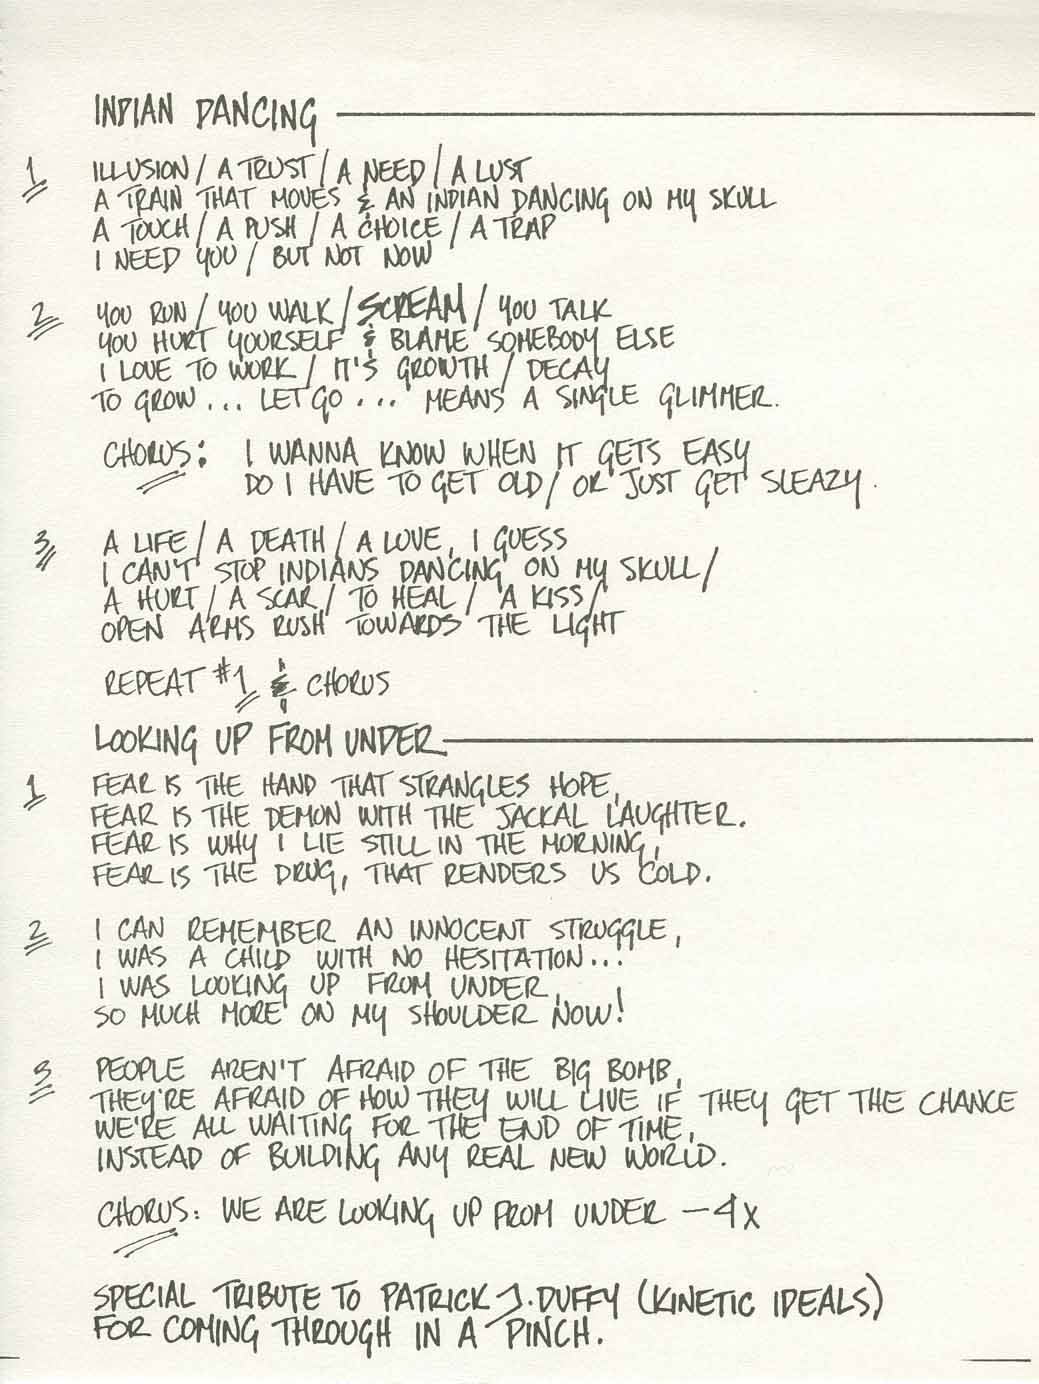 INDIAN DANCING
1 ILLUSION / A TRUST / A NEED / A LUST
A TRAIN THAT MOVES & AN INDIAN DANCING ON MY SKULL
A TOUCH / A PUSH / A CHOICE / A TRAP
I NEED YOU / BUT NOT NOW
2 YOU RUN / YOU WALK / SCREAM / YOU TALK
YOU HURT YOURSELF & BLAME SOMEBODY ELSE
I LOVE TO WORK / IT'S GROWTH / DECAY
TO GROW... LET GO... MEANS A SINGLE GLIMMER.
CHORUS: I WANNA KNOW WHEN IT GETS EASY
DO I HAVE TO GET OLD / OR JUST GET SLEAZY.
3 A LIFE / A DEATH / A LOVE, I GUESS
I CAN'T STOP INDIANS DANCING ON MY SKULL /
A HURT / A SCAR / TO HEAL / A KISS /
OPEN ARMS RUSH TOWARDS THE LIGHT
REPEAT #1 & CHORUS
LOOKING UP FROM UNDER
1 FEAR IS THE HAND THAT STRANGLES HOPE,
FEAR IS THE DEMON WITH THE JACKAL LAUGHTER.
FEAR IS WHY I LIE STILL IN THE MORNING,
FEAR IS THE DRUG, THAT RENDERS US COLD.
2 I CAN REMEMBER AN INNOCENT STRUGGLE,
I WAS A CHILD WITH NO HESITATION...
I WAS LOOKING UP FROM UNDER,
SO MUCH MORE ON MY SHOULDER NOW!
3 PEOPLE AREN'T AFRAID OF THE BIG BOMB,
THEY'RE AFRAID OF HOW THEY WILL LIVE IF THEY GET THE CHANCE
WE'RE ALL WAITING FOR THE END OF TIME,
INSTEAD OF BUILDING ANY REAL NEW WORLD.
CHORUS: WE ARE LOOKING UP FROM UNDER -4X
SPECIAL TRIBUTE TO PATRICK J. DUFFY (KINETIC IDEALS)
FOR COMING THROUGH IN A PINCH.